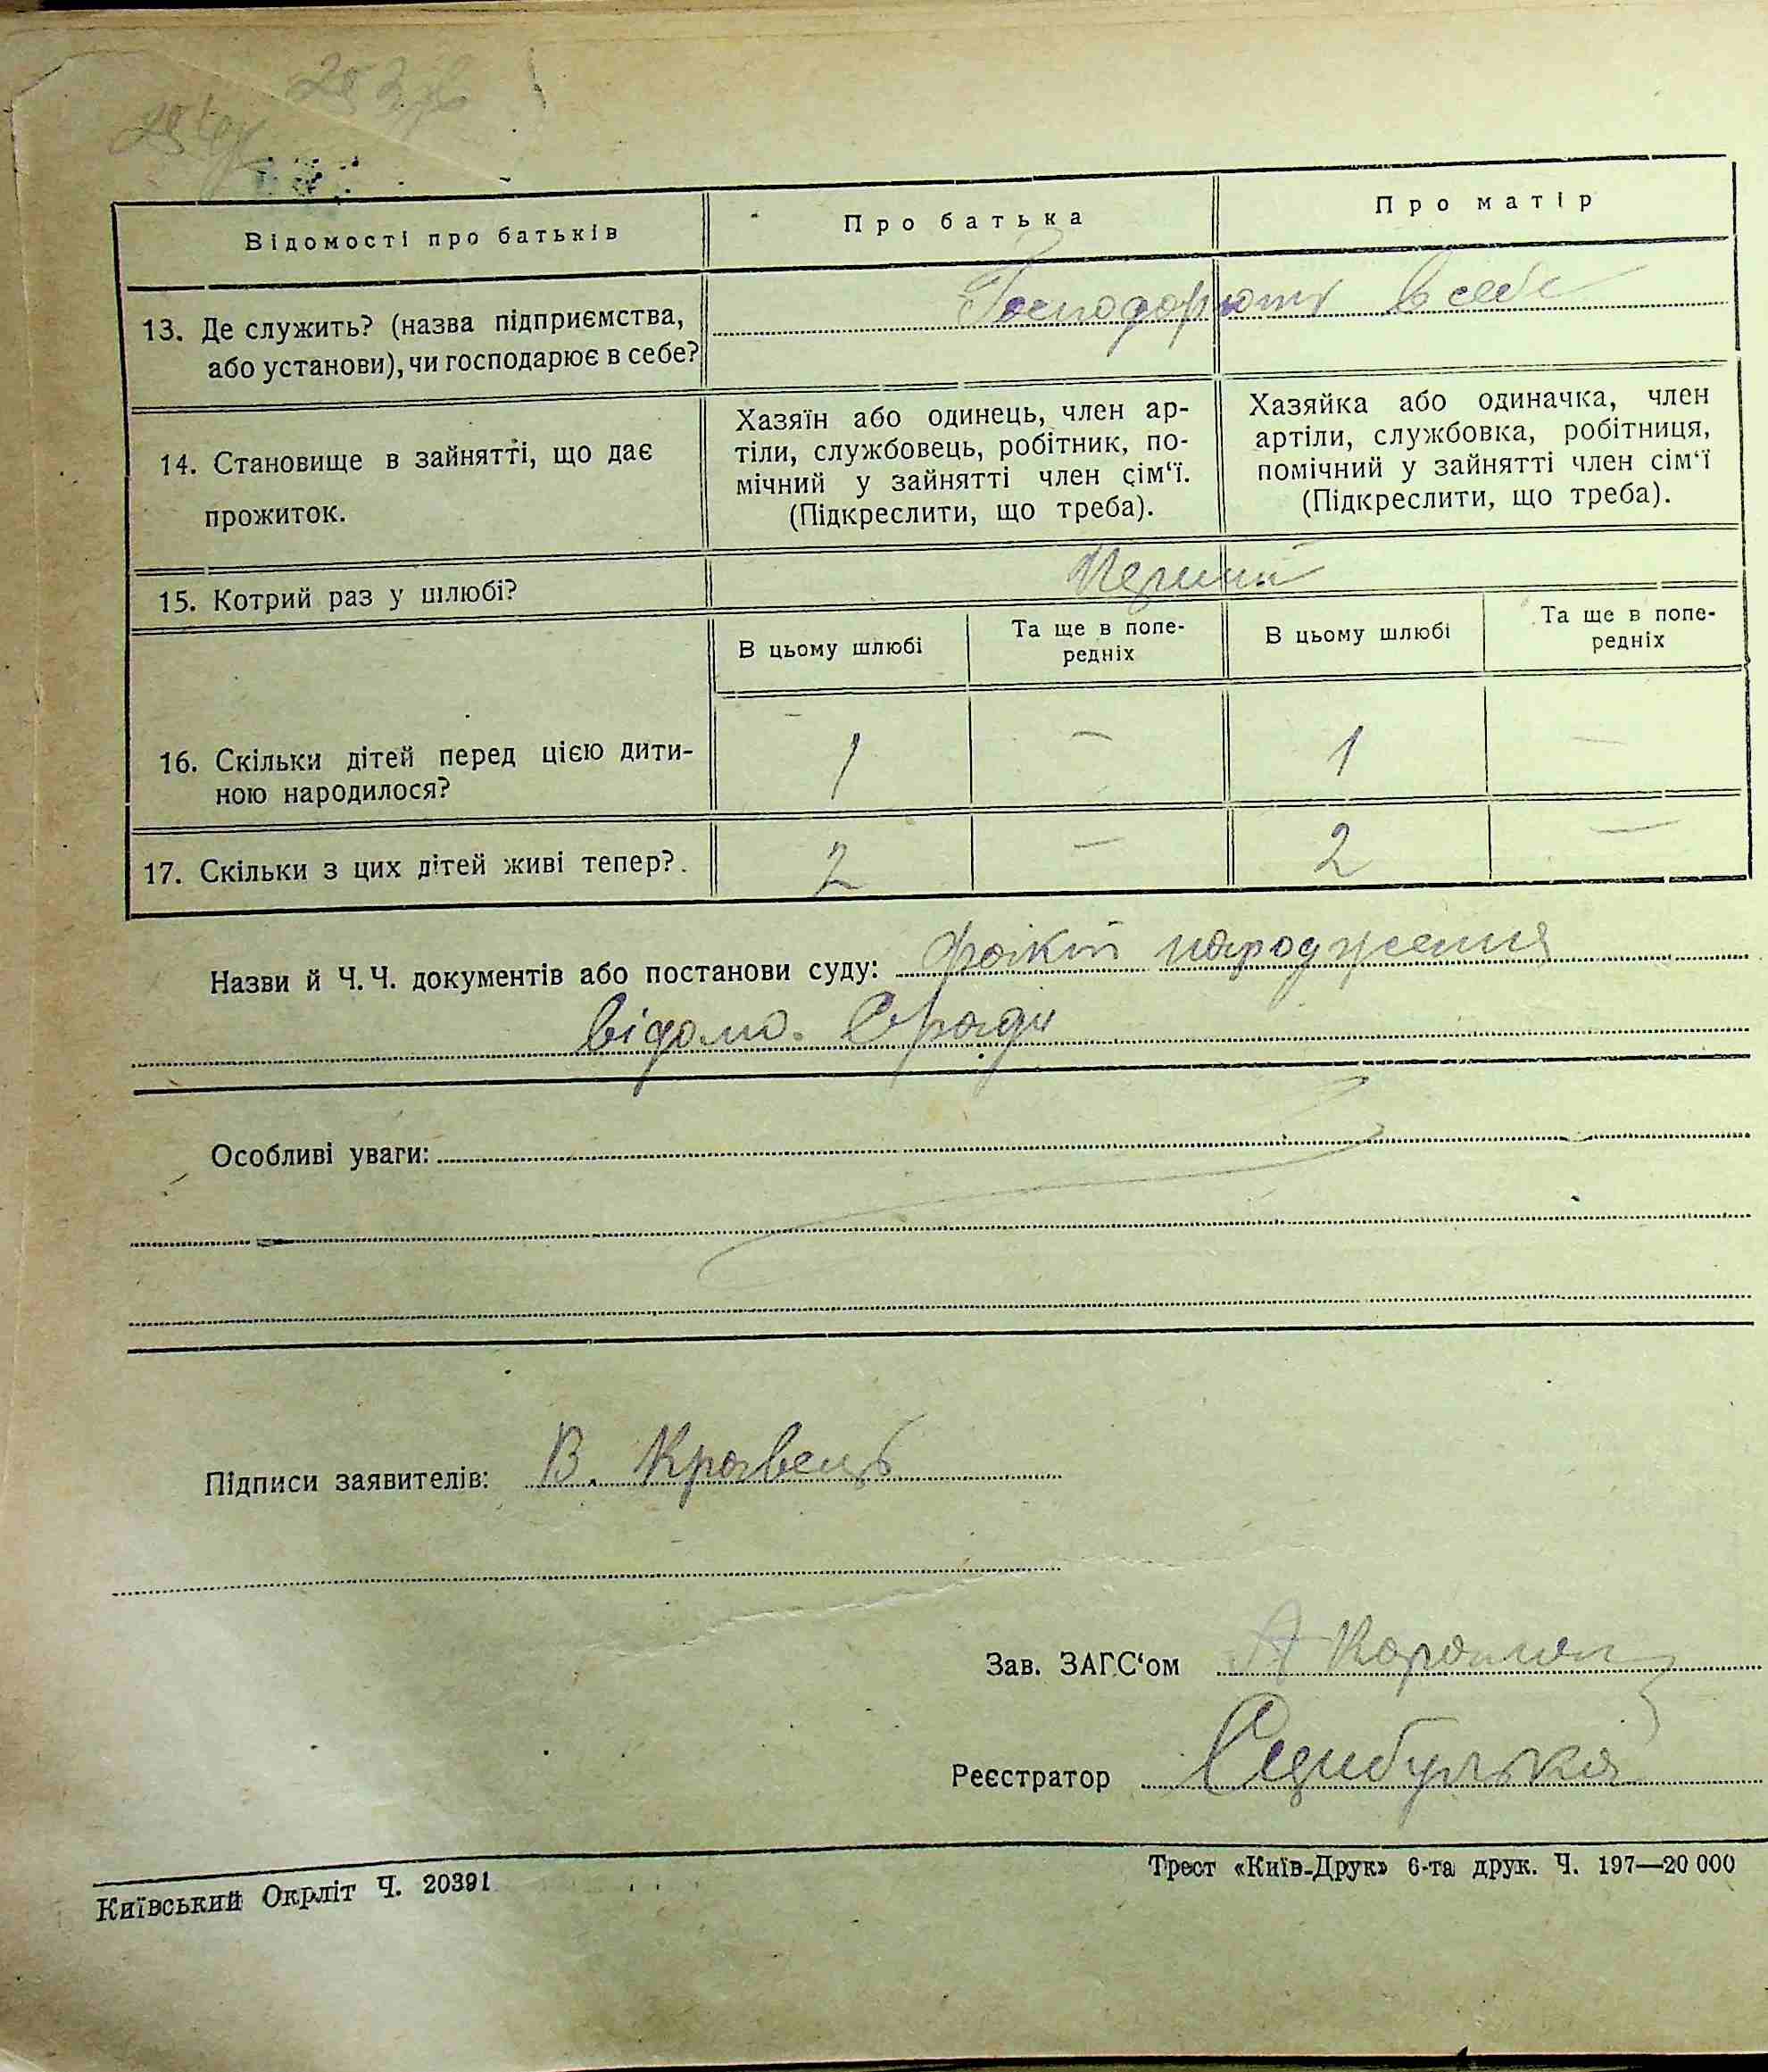 Відомості про батьків
Про батька
Про матір
13. Де служить? (назва підприємства,
або установи), чи господарює в себе?
Господорюют в себе
14. Становище в зайнятті, що дає
прожиток.
Хазяїн або одинець, член ар-
тіли, службовець, робітник, по-
мічний у зайнятті член сім‘ї.
(Підкреслити, що треба).
Хазяйка або одиначка, член
артіли, службовка, робітниця,
помічний у зайнятті член сім‘ї
(Підкреслити, що треба).
15. Котрий раз у шлюбі?
Перший
В цьому шлюбі
Та ще в попе-
редніх
В цьому шлюбі
Та ще в попе-
редніх
16. Скільки дітей перед цією дити-
ною народилося?
1 — 1 —
17. Скільки з цих дітей живі тепер?.
2 — 2 —
Назви й Ч. Ч. документів або постанови суду: факт народження
відомо. Сради
Особливі уваги:
Підписи заявителів: В. Кравець
Зав. ЗАГС‘ом А
Реєстратор Сцибулька
Київський Окрліт Ч. 20391
Трест «Київ-Друк» 6-та друк. Ч. 197—20 000